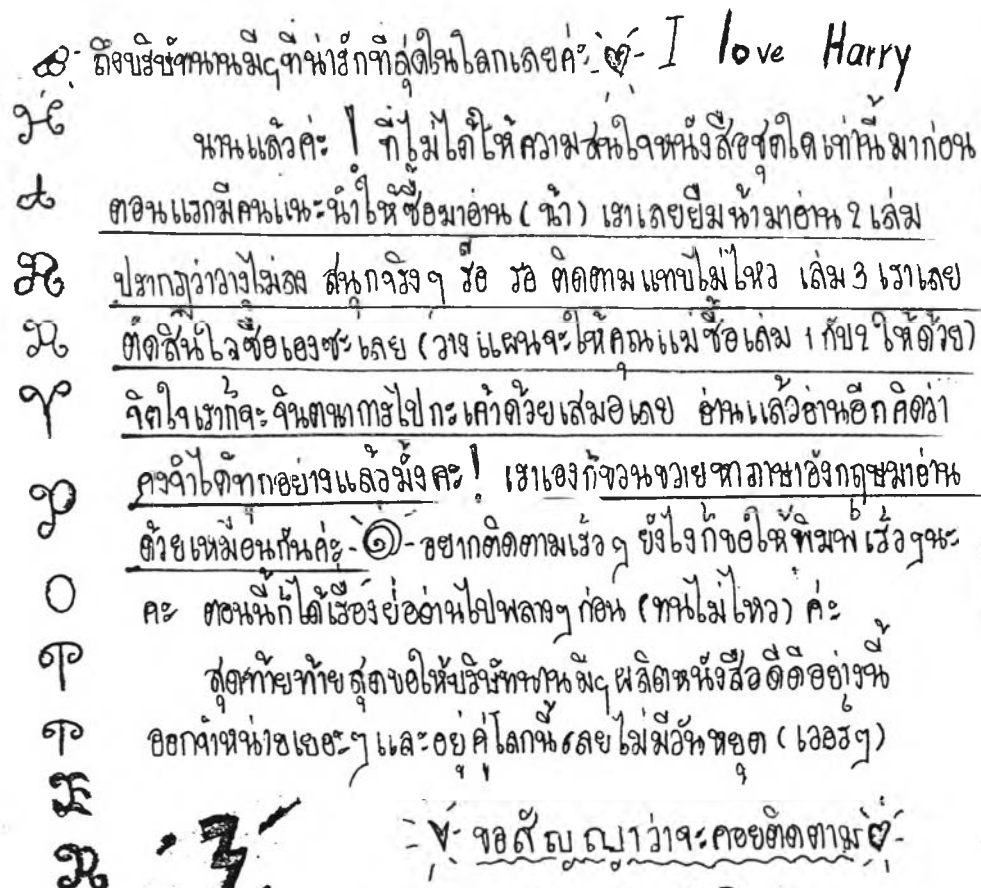 ถึงบริษัทนานมีฯที่น่ารักที่สุดในโลกเลยค่ะ I love Harry
นานแล้วค่ะ! ที่ไม่ได้ให้ความสนใจหนังสือชุดใดเท่านี้มาก่อน
ตอนแรกมีคนแนะนำให้ซื้อมาอ่าน (น้า) เราเลยยืมน้ามาอ่าน 2 เล่ม
ปรากฏว่าวางไม่ลง สนุกจริงๆ รึอ รอ ติดตามแทบไม่ไหว เล่ม 3 เราเลย
ตัดสินใจซื้อเองซะเลย (วางแผนจะให้คุณแม่ซื้อเล่ม 1 กับ 2 ให้ด้วย)
จิตใจเราก็จะจินตนาการไปกะเค้าด้วยเสมอเลย อ่านแล้วอ่านอีกคิดว่า
คงจำได้ทุกอย่างแล้วมั้งคะ! เราเองก็ขวนขวายหาภาษาอังกฤษมาอ่าน
ด้วยเหมือนกันค่ะ อยากติดตามเร็วๆ ยังไงก็ขอให้พิมพ์เร็วๆนะ
คะ ตอนนี้ก็ได้เรื่องย่ออ่านไปพลางๆ ก่อน (ทนไม่ไหว) ค่ะ
สุดท้ายท้ายสุดขอให้บริษัทนานมีฯ ผลิตหนังสือดีดีอย่างนี้
ออกจำหน่ายเยอะๆ และอยู่คู่โลกนี้เลยไม่มีวันหยุด (เวอร์ๆ)
ขอสัญญาว่าจะคอยติดตาม
H
a
R
R
Y
P
O
T
T
E
R
3